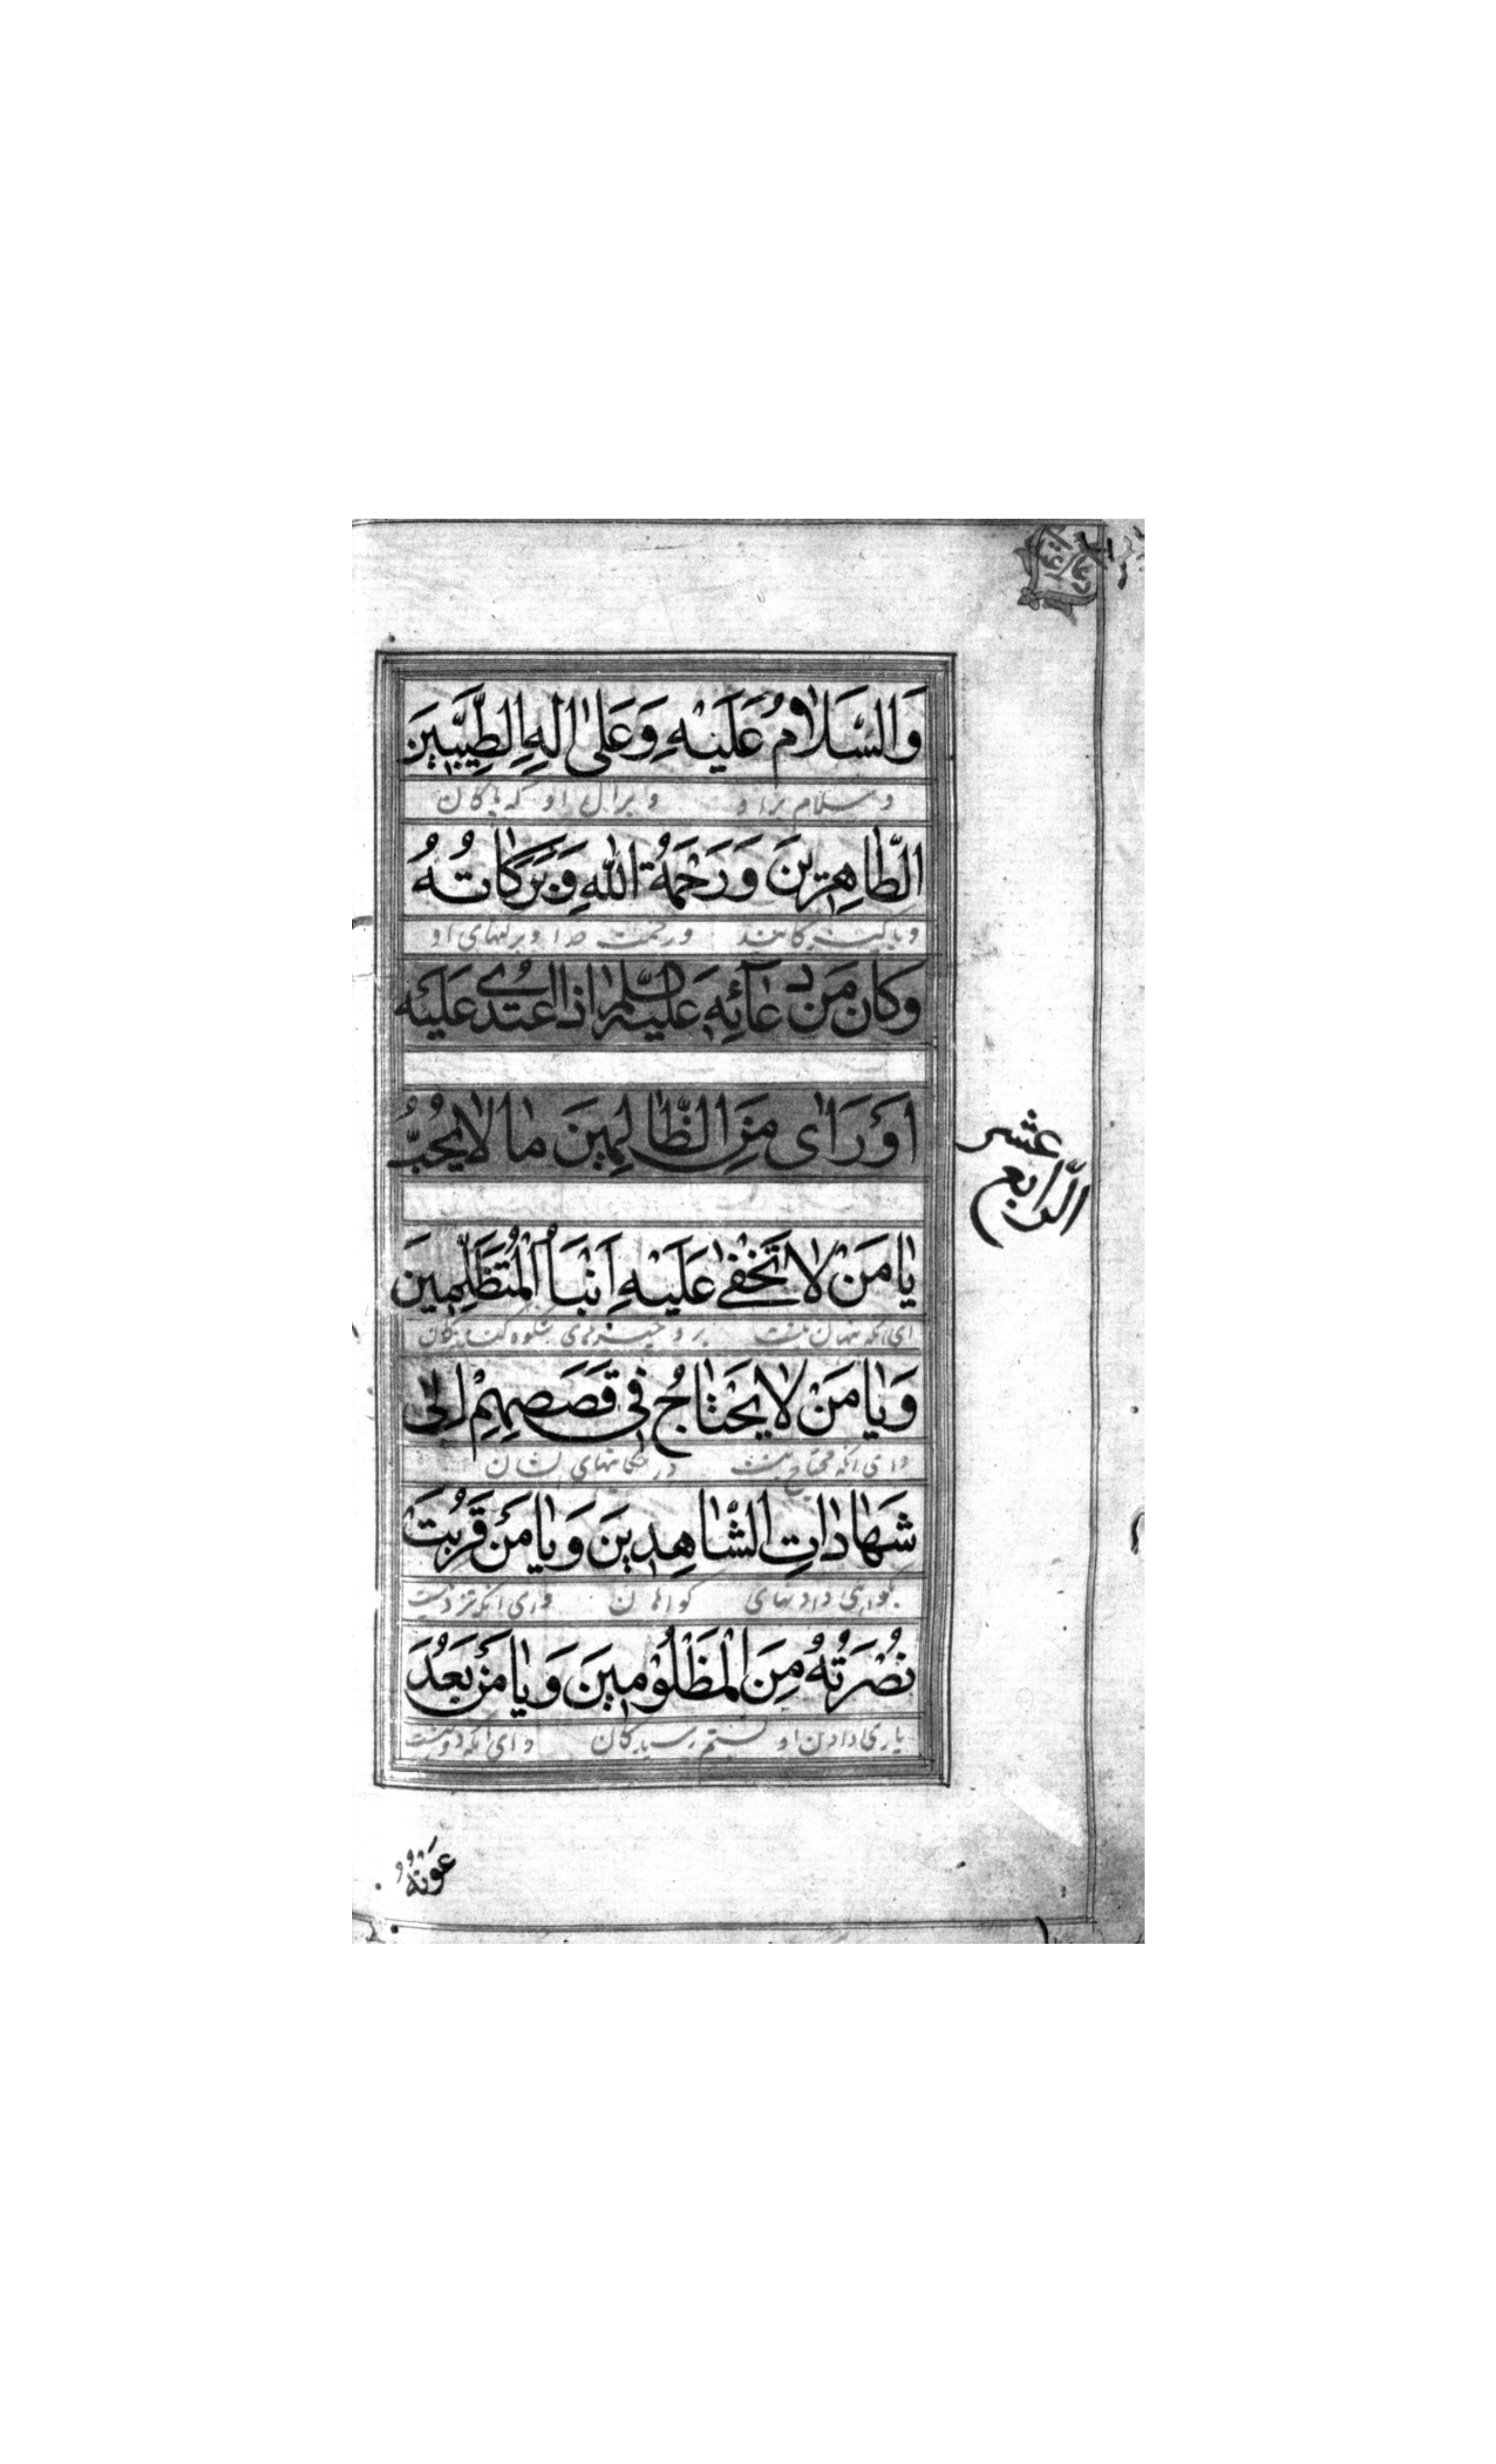 وَالسَّلَامُ عَلَيْهِ وَعَلىٰ الِهِ الطَّيِّبِينَ
و سلام بر او و بر ال او که پاکان
الطَّاهِرِينَ وَرَحْمَةُ اللهِ وَبَرَكَاتُهُ
و رحمت خدا و برکتهای او
وَكَانَ مِنْ دُعَائِهِ عَلَيْهِ السَّلَم اِذَا اعْتُدِىَ عَلَيْهِ
اَوْ رَاى مِنَ الظَّالِمِينَ مَا لَا يُحِبُّ
الرابع عشر
يَا مَنْ لَا تَخْفىٰ عَلَيْهِ اَنْبَاءُ الْمُتَظَلِّمِينَ
ای انکه پنهان نیست بر او خبرهای شکوه کنندگان
وَيَا مَنْ لَا يَحْتَاجُ فِى قَصَصِهِمْ اِلىٰ
و ای انکه محتاج نیست در حکایتهای ایشان
شَهَادَاتِ الشَّاهِدِينَ وَيَا مَنْ قَرُبَتْ
بگواهی دادنهای کواهان و ای انکه نزدیکست
نُصْرَتُهُ مِنَ الْمَظْلُومِينَ وَيَا مَنْ بَعُدَ
یاری دادن او بستم رسیدکان و ای انکه دورست
عَوْنُهُ